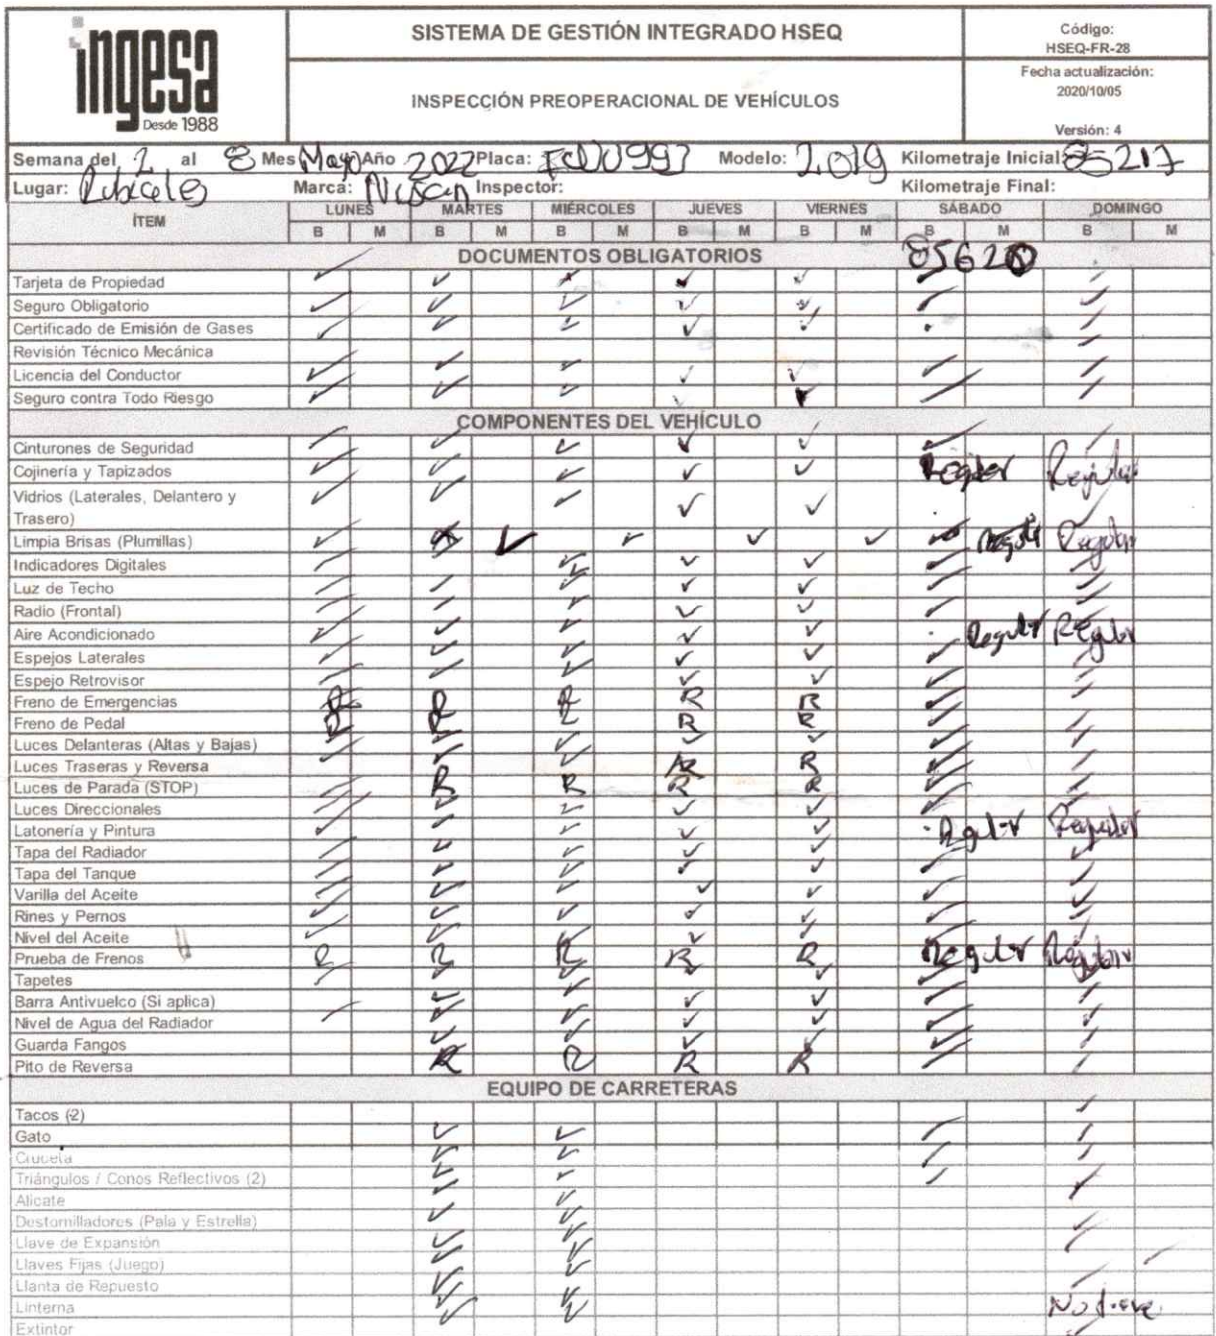 ingesa
Desde 1988
SISTEMA DE GESTIÓN INTEGRADO HSEQ
Código:
HSEQ-FR-28
INSPECCIÓN PREOPERACIONAL DE VEHÍCULOS
Fecha actualización:
2020/10/05
Versión: 4
Semana del 2 al 8 Mes Mayo Año 2022 Placa: Modelo: 2019 Kilometraje Inicial: 85217
Lugar: Rubiales Marca: Nissan Inspector: Kilometraje Final:
ÍTEM LUNES MARTES MIÉRCOLES JUEVES VIERNES SÁBADO DOMINGO
B M B M B M B M B M B M B M
DOCUMENTOS OBLIGATORIOS
Tarjeta de Propiedad
Seguro Obligatorio
Certificado de Emisión de Gases
Revisión Técnico Mecánica
Licencia del Conductor
Seguro contra Todo Riesgo
COMPONENTES DEL VEHÍCULO
Cinturones de Seguridad
Cojinería y Tapizados Regular Regular
Vidrios (Laterales, Delantero y
Trasero)
Limpia Brisas (Plumillas) Regular Regular
Indicadores Digitales
Luz de Techo
Radio (Frontal)
Aire Acondicionado Regular Regular
Espejos Laterales
Espejo Retrovisor
Freno de Emergencias R R R R R
Freno de Pedal R R R R R
Luces Delanteras (Altas y Bajas)
Luces Traseras y Reversa R R
Luces de Parada (STOP) R R R R
Luces Direccionales
Latonería y Pintura Regular Regular
Tapa del Radiador
Tapa del Tanque
Varilla del Aceite
Rines y Pernos
Nivel del Aceite
Prueba de Frenos R R R R R Regular Regular
Tapetes
Barra Antivuelco (Si aplica)
Nivel de Agua del Radiador
Guarda Fangos
Pito de Reversa R R R R
EQUIPO DE CARRETERAS
Tacos (2)
Gato
Cruceta
Triángulos / Conos Reflectivos (2)
Alicate
Destornilladores (Pala y Estrella)
Llave de Expansión
Llaves Fijas (Juego)
Llanta de Repuesto
Linterna No tiene
Extintor